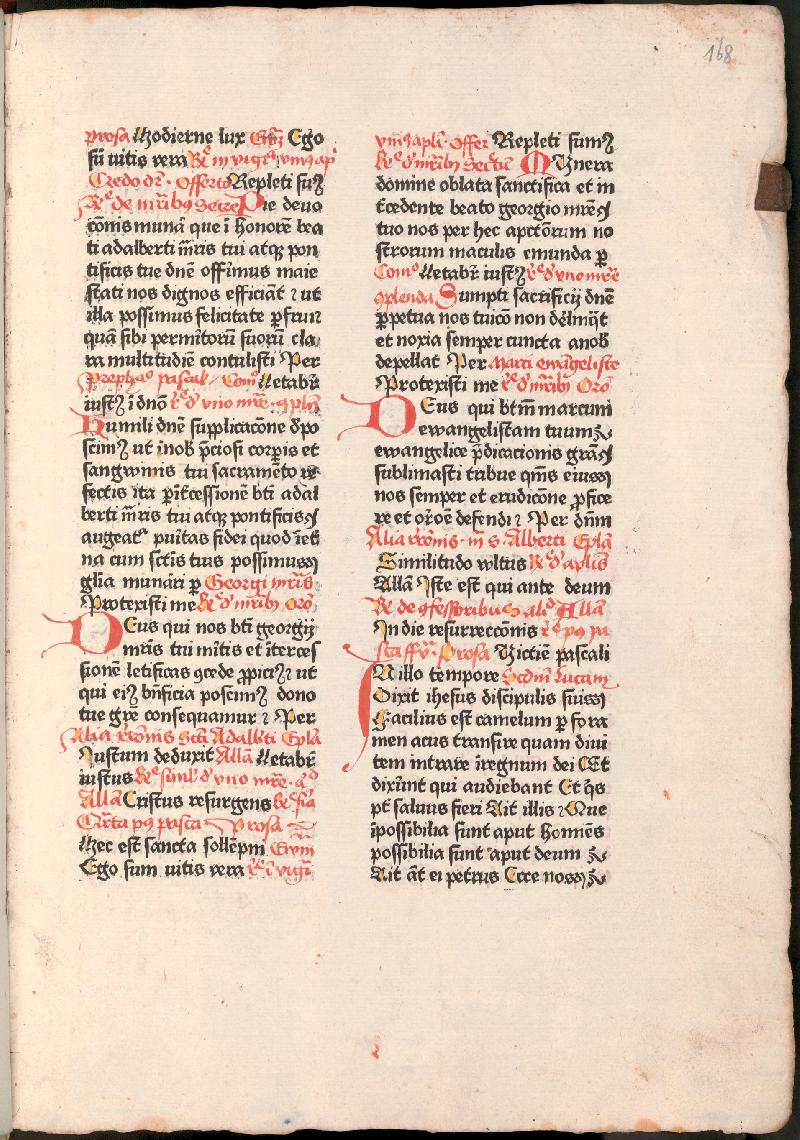 168
prosa Hodierne lux Ewm Ego
sū uitis vera Rͤ in vigͣ vniꝰ apͥ
Credo dr̄ · Offert Repleti suꝫ
Rͤ de mrībus Secre Pie deuo
cōmis munā que ī honorē bea
ti adalberti mrīs tui atqꝫ pon
tificis tue dnē offīmus maie
stati nos dignos efficiāt ⁊ ut
illa possimus felicitate ꝑfrui
quā sibi permitorū suorū cla
ra multitudīe contulisti Per
Prephaͦ pascalͥ · Comͦ Letabr̄
iustꝫ ī dnō rͤ d vno mre · ꝯplē
Humili dnē supplicacōne dp̄o
scimꝫ ut īnob p̄ciosi corpis et
sangwinis tui sacramēto re
fectis ita ꝑ īt̄cessionē btī adal
berti mrīs tui atqꝫ pontificis
augeatͬ puītas fidei quod īet̄
na cum sctīs tuis possimus
glīa munāri ꝑ Georgi mrīs
Protexisti me Rͤ d mrībꝫ Orō
DEus qui nos btī georgij
mrīs tui mītis et īterces
sionē letificas ꝯcede ꝓpiciꝰ ⁊ ut
qui eiꝰ bn̄ficia poscimꝫ dono
tue grē consequamur ⁊ Per
Alia rōnis sctī Adalbti Epla
Iustum deduxit Allā Letabr̄
iustus Rͤ siml̄ d vno mre · aᷘ
Allā Cristus resurgens
Q̄rta pꝰ pasca Prosa
Hec est sancta sollēpm Ewm
Ego sum uitis vera Rͤ ī vigͥ
vniꝰ apli · Offer Repleti sumꝫ
Rͤ d mrībꝫ Secre MUnera
domine oblata sanctifica et in
t̄cedente beato georgio mrē
tuo nos per hec apctōrum no
strorum maculis emunda ꝑ
Comͦ Letabr̄ iustꝫ Rͤ d vno mre
ꝯplenda Sumpti sacrificij dnē
ꝑpetua nos tuicō non dēlinq̄t
et noxia semper cuncta anob
depellat Per Marci ewāgeliste
Protexisti me Rͤ d mrībꝫ Orō
DEus qui btm̄ marcum
ewangelistam tuum
ewangelice p̄dicacionis grā
sublimasti tribue qm̄s eius
nos semper et erudicōne ꝓfice
re et orōe defendi ⁊ Per dn̄m
Alia rōnis · in s · Alberti Epla
Similitudo vltus Rͤ d aplis
Allā Iste est qui ante deum
Rͤ de ꝯfessoribus Allā
In die resurreccōnis rͤ pꝰ pa
sca Prosa Victie pascali
IN illo tempore Scdm Lucam
Dixit ihesus discipulis suis
Facilius est camelum ꝑ fora
men acus transire quam diui
tem intrare īregnum dei Et
dixt̄nt qui audiebant Et q̄s
pt̄ saluus fieri Ait illis ⁊ Que
īpossibilia sunt aput homēs
possibilia sunt aput deum
Ait āt ei petrus Ecce nos